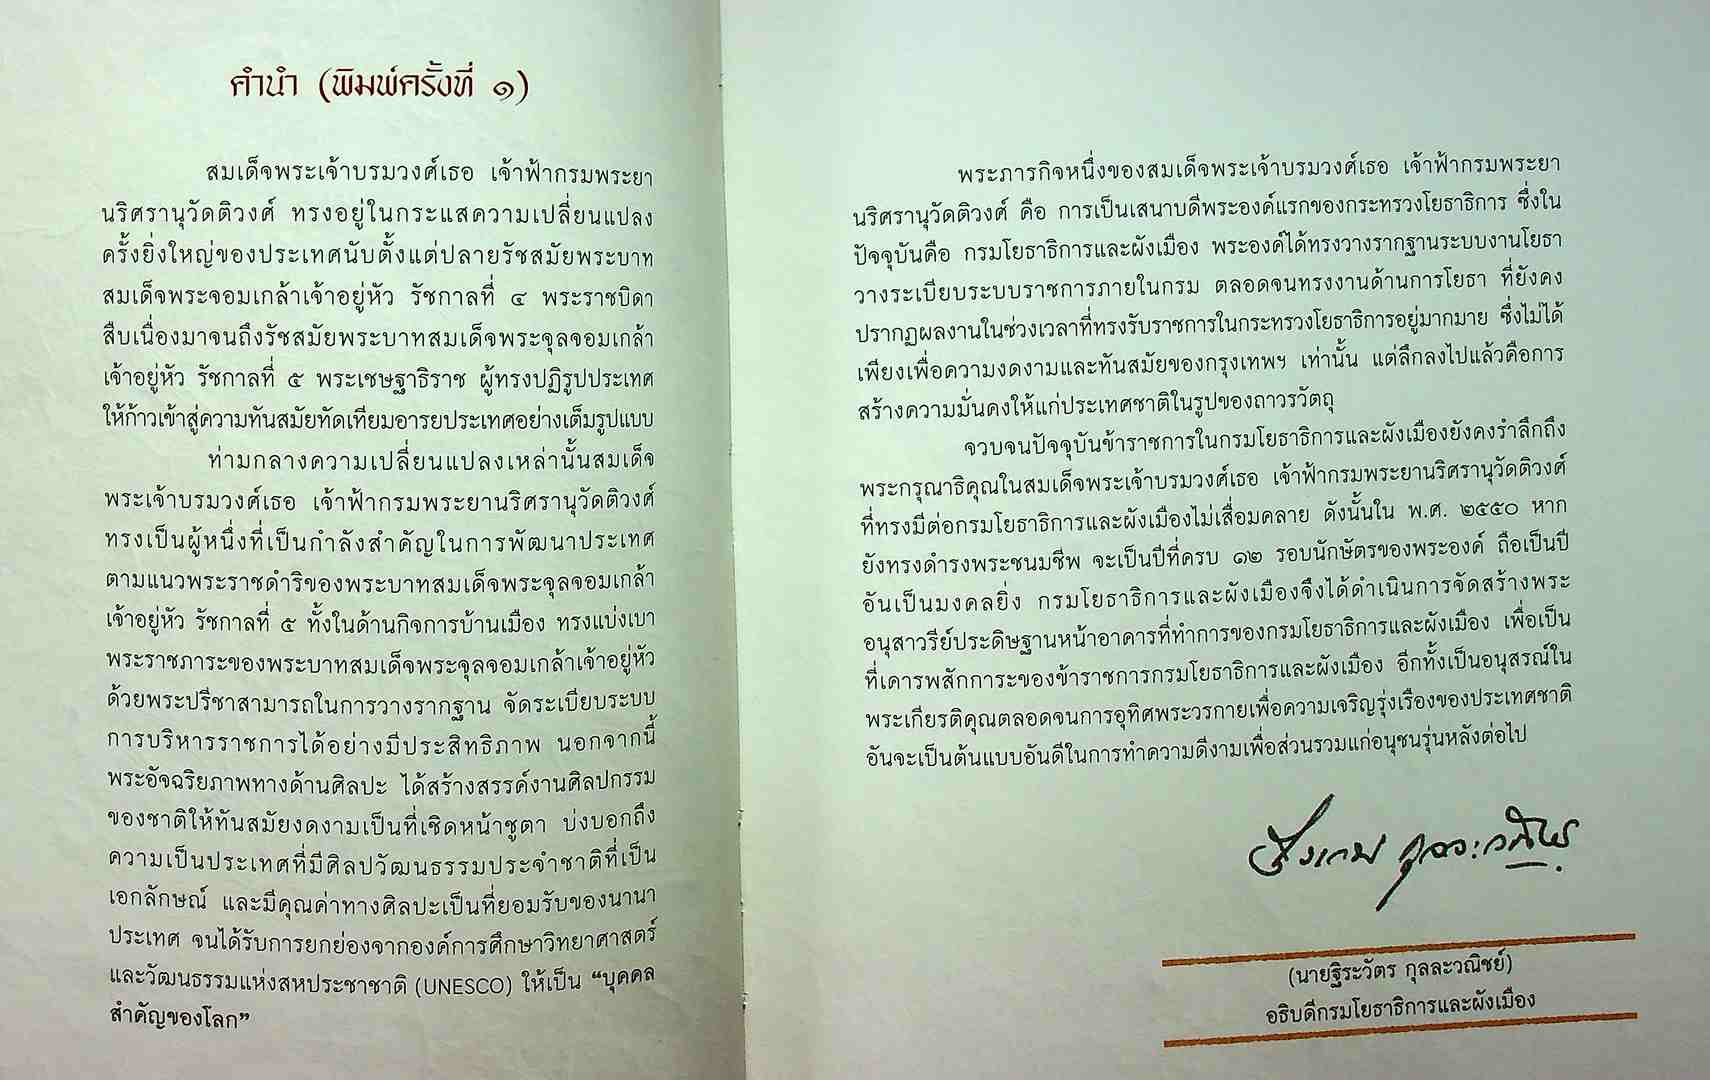 คำนำ (พิมพ์ครั้งที่ ๑)
สมเด็จพระเจ้าบรมวงศ์เธอ เจ้าฟ้ากรมพระยา
นริศรานุวัดติวงศ์ ทรงอยู่ในกระแสความเปลี่ยนแปลง
ครั้งยิ่งใหญ่ของประเทศนับตั้งแต่ปลายรัชสมัยพระบาท
สมเด็จพระจอมเกล้าเจ้าอยู่หัว รัชกาลที่ ๔ พระราชบิดา
สืบเนื่องมาจนถึงรัชสมัยพระบาทสมเด็จพระจุลจอมเกล้า
เจ้าอยู่หัว รัชกาลที่ ๕ พระเชษฐาธิราช ผู้ทรงปฏิรูปประเทศ
ให้ก้าวเข้าสู่ความทันสมัยทัดเทียมอารยประเทศอย่างเต็มรูปแบบ
ท่ามกลางความเปลี่ยนแปลงเหล่านั้นสมเด็จ
พระเจ้าบรมวงศ์เธอ เจ้าฟ้ากรมพระยานริศรานุวัดติวงศ์
ทรงเป็นผู้หนึ่งที่เป็นกำลังสำคัญในการพัฒนาประเทศ
ตามแนวพระราชดำริของพระบาทสมเด็จพระจุลจอมเกล้า
เจ้าอยู่หัว รัชกาลที่ ๕ ทั้งในด้านกิจการบ้านเมือง ทรงแบ่งเบา
พระราชภาระของพระบาทสมเด็จพระจุลจอมเกล้าเจ้าอยู่หัว
ด้วยพระปรีชาสามารถในการวางรากฐาน จัดระเบียบระบบ
การบริหารราชการได้อย่างมีประสิทธิภาพ นอกจากนี้
พระอัจฉริยภาพทางด้านศิลปะ ได้สร้างสรรค์งานศิลปกรรม
ของชาติให้ทันสมัยงดงามเป็นที่เชิดหน้าชูตา บ่งบอกถึง
ความเป็นประเทศที่มีศิลปวัฒนธรรมประจำชาติที่เป็น
เอกลักษณ์ และมีคุณค่าทางศิลปะเป็นที่ยอมรับของนานา
ประเทศ จนได้รับการยกย่องจากองค์การศึกษาวิทยาศาสตร์
และวัฒนธรรมแห่งสหประชาชาติ (UNESCO) ให้เป็น “บุคคล
สำคัญของโลก”
พระภารกิจหนึ่งของสมเด็จพระเจ้าบรมวงศ์เธอ เจ้าฟ้ากรมพระยา
นริศรานุวัดติวงศ์ คือ การเป็นเสนาบดีพระองค์แรกของกระทรวงโยธาธิการ ซึ่งใน
ปัจจุบันคือ กรมโยธาธิการและผังเมือง พระองค์ได้ทรงวางรากฐานระบบงานโยธา
วางระเบียบระบบราชการภายในกรม ตลอดจนทรงงานด้านการโยธา ที่ยังคง
ปรากฏผลงานในช่วงเวลาที่ทรงรับราชการในกระทรวงโยธาธิการอยู่มากมาย ซึ่งไม่ได้
เพียงเพื่อความงดงามและทันสมัยของกรุงเทพฯ เท่านั้น แต่ลึกลงไปแล้วคือการ
สร้างความมั่นคงให้แก่ประเทศชาติในรูปของถาวรวัตถุ
จวบจนปัจจุบันข้าราชการในกรมโยธาธิการและผังเมืองยังคงรำลึกถึง
พระกรุณาธิคุณในสมเด็จพระเจ้าบรมวงศ์เธอ เจ้าฟ้ากรมพระยานริศรานุวัดติวงศ์
ที่ทรงมีต่อกรมโยธาธิการและผังเมืองไม่เสื่อมคลาย ดังนั้นใน พ.ศ. ๒๕๕๐ หาก
ยังทรงดำรงพระชนมชีพ จะเป็นปีที่ครบ ๑๒ รอบนักษัตรของพระองค์ ถือเป็นปี
อันเป็นมงคลยิ่ง กรมโยธาธิการและผังเมืองจึงได้ดำเนินการจัดสร้างพระ
อนุสาวรีย์ประดิษฐานหน้าอาคารที่ทำการของกรมโยธาธิการและผังเมือง เพื่อเป็น
ที่เคารพสักการะของข้าราชการกรมโยธาธิการและผังเมือง อีกทั้งเป็นอนุสรณ์ใน
พระเกียรติคุณตลอดจนการอุทิศพระวรกายเพื่อความเจริญรุ่งเรืองของประเทศชาติ
อันจะเป็นต้นแบบอันดีในการทำความดีงามเพื่อส่วนรวมแก่อนุชนรุ่นหลังต่อไป
(นายฐิระวัตร กุลละวณิชย์)
อธิบดีกรมโยธาธิการและผังเมือง